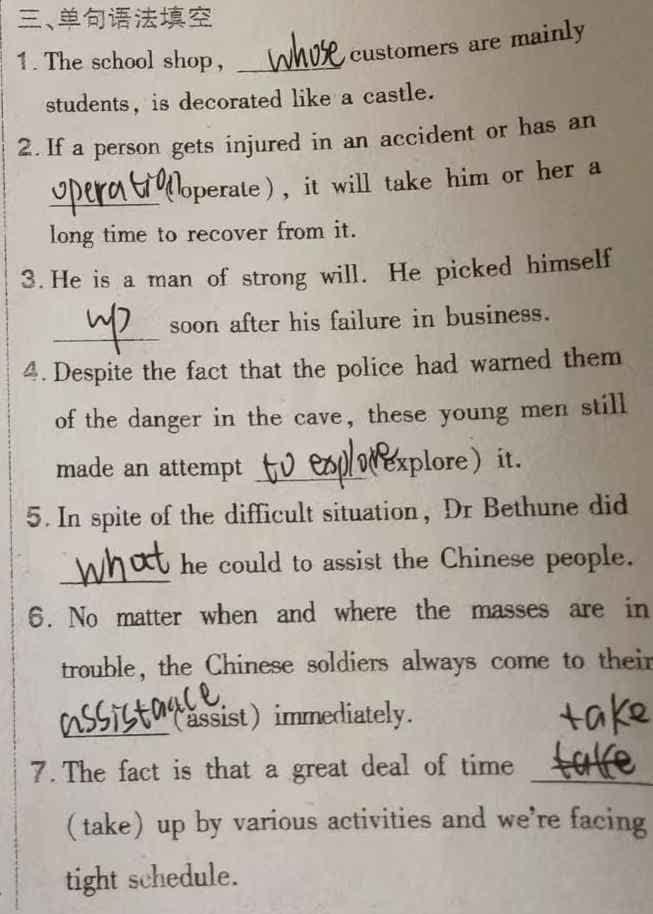 三、单句语法填空
1. The school shop, whose customers are mainly
students, is decorated like a castle.
2. If a person gets injured in an accident or has an
operation (operate), it will take him or her a
long time to recover from it.
3. He is a man of strong will. He picked himself
up soon after his failure in business.
4. Despite the fact that the police had warned them
of the danger in the cave, these young men still
made an attempt to explore (explore) it.
5. In spite of the difficult situation, Dr Bethune did
what he could to assist the Chinese people.
6. No matter when and where the masses are in
trouble, the Chinese soldiers always come to their
assistance (assist) immediately.
take
7. The fact is that a great deal of time take
(take) up by various activities and we're facing
tight schedule.